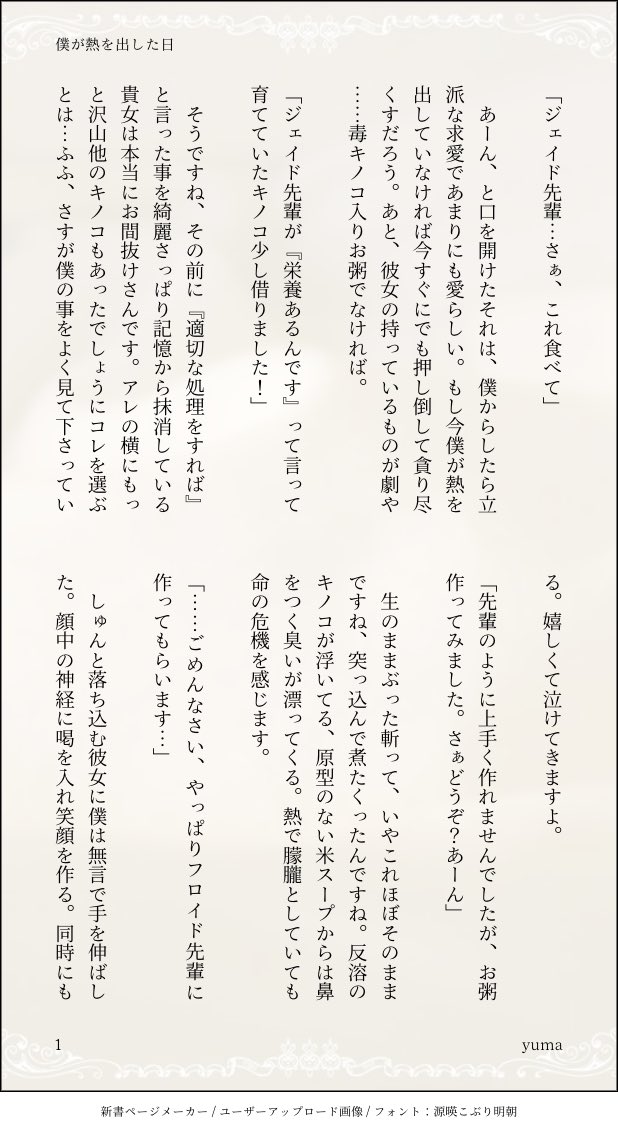 僕が熱を出した日
「ジェイド先輩…さぁ、これ食べて」
　あーん、と口を開けたそれは、僕からしたら立
派な求愛であまりにも愛らしい。もし今僕が熱を
出していなければ今すぐにでも押し倒して貪り尽
くすだろう。あと、彼女の持っているものが劇や
……毒キノコ入りお粥でなければ。
「ジェイド先輩が『栄養あるんです』って言って
育てていたキノコ少し借りました！」
　そうですね、その前に『適切な処理をすれば』
と言った事を綺麗さっぱり記憶から抹消している
貴女は本当にお間抜けさんです。アレの横にもっ
と沢山他のキノコもあったでしょうにコレを選ぶ
とは…ふふ、さすが僕の事をよく見て下さってい
る。嬉しくて泣けてきますよ。
「先輩のように上手く作れませんでしたが、お粥
作ってみました。さぁどうぞ？あーん」
　生のままぶった斬って、いやこれほぼそのまま
ですね、突っ込んで煮たくったんですね。反溶の
キノコが浮いてる、原型のない米スープからは鼻
をつく臭いが漂ってくる。熱で朦朧としていても
命の危機を感じます。
「……ごめんなさい、やっぱりフロイド先輩に
作ってもらいます…」
　しゅんと落ち込む彼女に僕は無言で手を伸ばし
た。顔中の神経に喝を入れ笑顔を作る。同時にも
1
yuma
新書ページメーカー / ユーザーアップロード画像 / フォント：源暎こぶり明朝